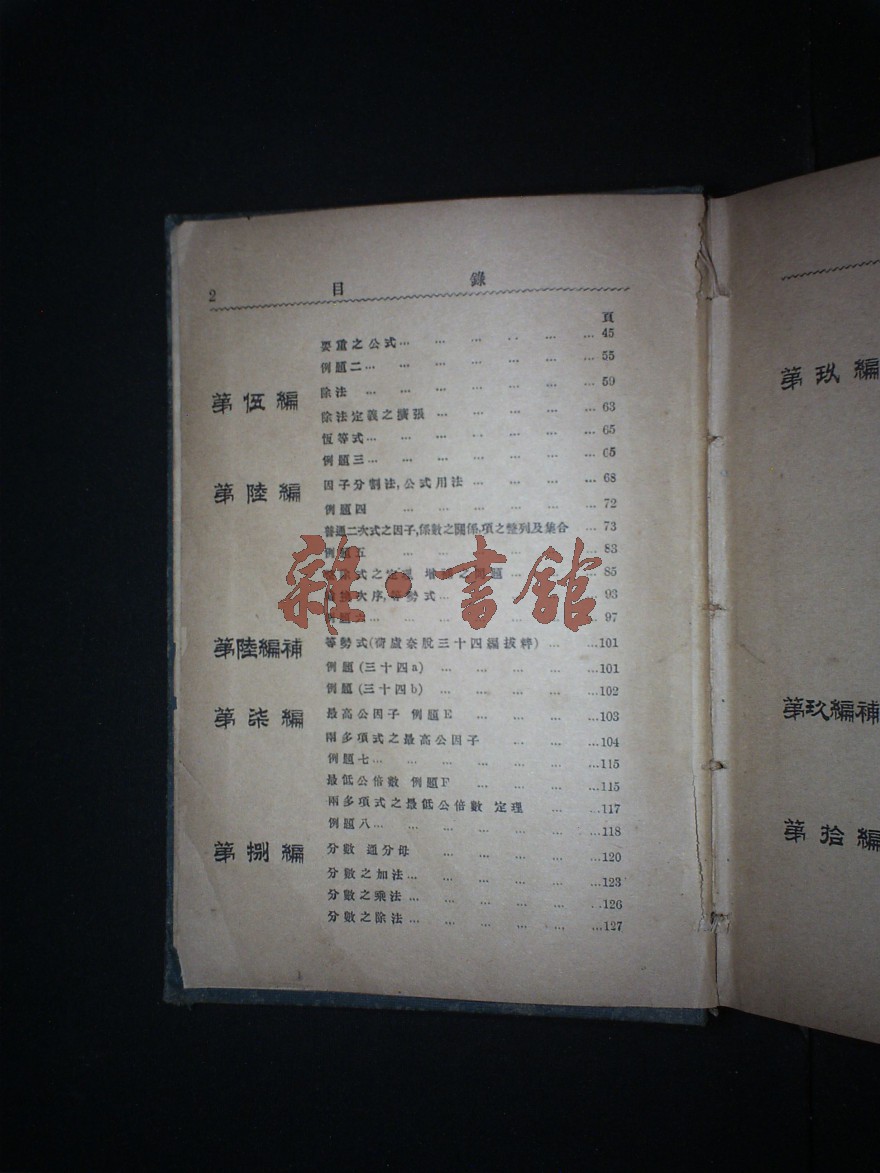 2 目 錄
頁
要重之公式… … … … … … 45
例題二… … … … … … 55
第伍編 除法 … … … … … … 59
除法定義之擴張 … … … … … 63
恆等式… … … … … … 65
例題三… … … … … … 65
第陸編 因子分割法,公式用法 … … … … 68
例題四 … … … … … … 72
普通二次式之因子,係數之關係,項之整列及集合 … 73
例題五 … … … … … 83
式之定理 … 85
次序,等勢式… … … … 93
例題六 … … … … … 97
第陸編補 等勢式(荷盧奈脫三十四編拔粹) … … …101
例題(三十四a) … … … … …101
例題(三十四b) … … … … …102
第柒編 最高公因子 例題E … … … …103
兩多項式之最高公因子 … … …104
例題七… … … … … …115
最低公倍數 例題F … … … …115
兩多項式之最低公倍數 定理 … …117
例題八… … … … … … …118
第捌編 分數 通分母 … … … … …120
分數之加法… … … … … …123
分數之乘法 … … … … … …126
分數之除法 … … … … … …127
第玖編
第玖編補
第拾編
雜·書館